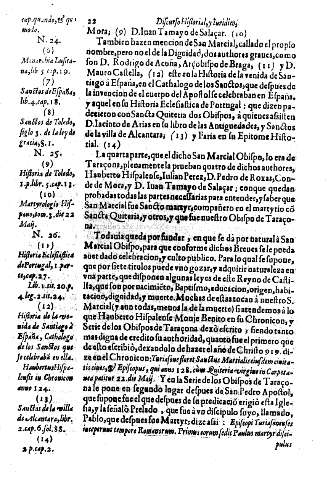 22 Discurso Historial, y Juridico,
Mora; (9) D. Iuan Tamayo de Salaçar. (10)
Tambien hazen mencion de San Marcial, callado el propio
nombre, pero no el de Dignidad, dos autores graves, como
son D. Rodrigo de Acuña, Arçobispo de Braga, (11) y D.
Mauro Castella, (12) este en la Historia de la venida de Santiago
à España, es en Cathologo de los Sanctos, que despues de
la invencion de el cuerpo del Apostol se celebraban en España,
y aquel en su Historia Eclesiastica de Portugal: que dize
padecieron con Sancta Quiteria dos Obispos, à quienes assisten
D. Iacinto de Arias en su libro de las Antiguedades, y Sanctos
de la villa de Alcantara; (13) y Faria en su Epitome Historial.
(14)
La quarta parte, que el dicho San Marcial Obispo, lo era de
Taraçona, plenamente la prueban quatro de dichos authores,
Haberto Hispalense, Iulian Perez, D. Pedro de Roxas, Conde
de Mora, y D. Iuan Tamayo de Salaçar; con que quedan
probadas todas las partes necessarias para entender, y saber que
San Marcial fue Sancto martyr, compañero en el martyrio cõ
Sancta Quiteria, y otros, y que fue nuestro Obispo de Taraçona.
Todavia queda por fundar, en que se dà por natural à San
Marcial Obispo, para que conforme dichos Breves se le pueda
celebracion, y culto publico. Para lo qual se supone,
que por siete titulos puede vno gozar, y adquirir naturaleza en
vna parte, que disponen algunas leyes de este Reyno de Castilla,
que son por nacimiẽto, Baptismo, educacion, origen, habitacion,
dignidad, y muerte.
Marcial (y aun todas, menos la de la muerte)
que Hauberto Hispalense Monje Benito en su Chronicon, y
Serie de los Obispos de Taraçona dexò escrito, y siendo tanto
mas digna de credito su authoridad, quanto fue el primero que
de esto escribiò, dexandolo de hazer el año de Christo 919. dize
en el Chronicon: Turiasone floret Sanctus Martialis
civis, & Episcopus, qui anno 128. cum Quiteria virgine in Carpetania
patitur 22. die Maij. Y en la Serie de los Obispos de Taraçona
le pone en segundo lugar despues de San Pedro Apostol,
que supone fue el que despues de su predicacion erigiò esta Iglesia,
y la señalò Prelado, que fue à vn discipulo suyo, llamado,
Pablo, que despues fue Martyr; dize assi: Episcopi Turiasonenses
inceperunt tempore Romanorum. Primus eorum sedit Paulus martyr discipulus
cap. quando, es
malo.
N. 24.
(9)
lib. 5. c. p. 19.
(7)
Sanctos de España,
lib. 4. cap. 18.
(8)
Sanctos de Toledo,
siglo 3. de la ley de
gracia, §. 1.
N. 25.
(9)
Historia de Toledo,
1. p. lib. 3. cap. 13.
(10)
Martyrologio Hispano,
tom. 3. die 22
Maij.
N. 26.
(11)
Historia Eclesiastica
de Portugal, 1. part.
cap. 27.
(12)
Historia de la venida
de Santiago à
España, Cathologo
de los Sanctos que
se celebrabã en ella.
Haubertus Hispalensis
in Chronicon
anno 124.
(13)
Sanctos de la villa
de Alcantara, lib.
2. cap. 6. fol. 88.
(14)
2. p. cap. 2.